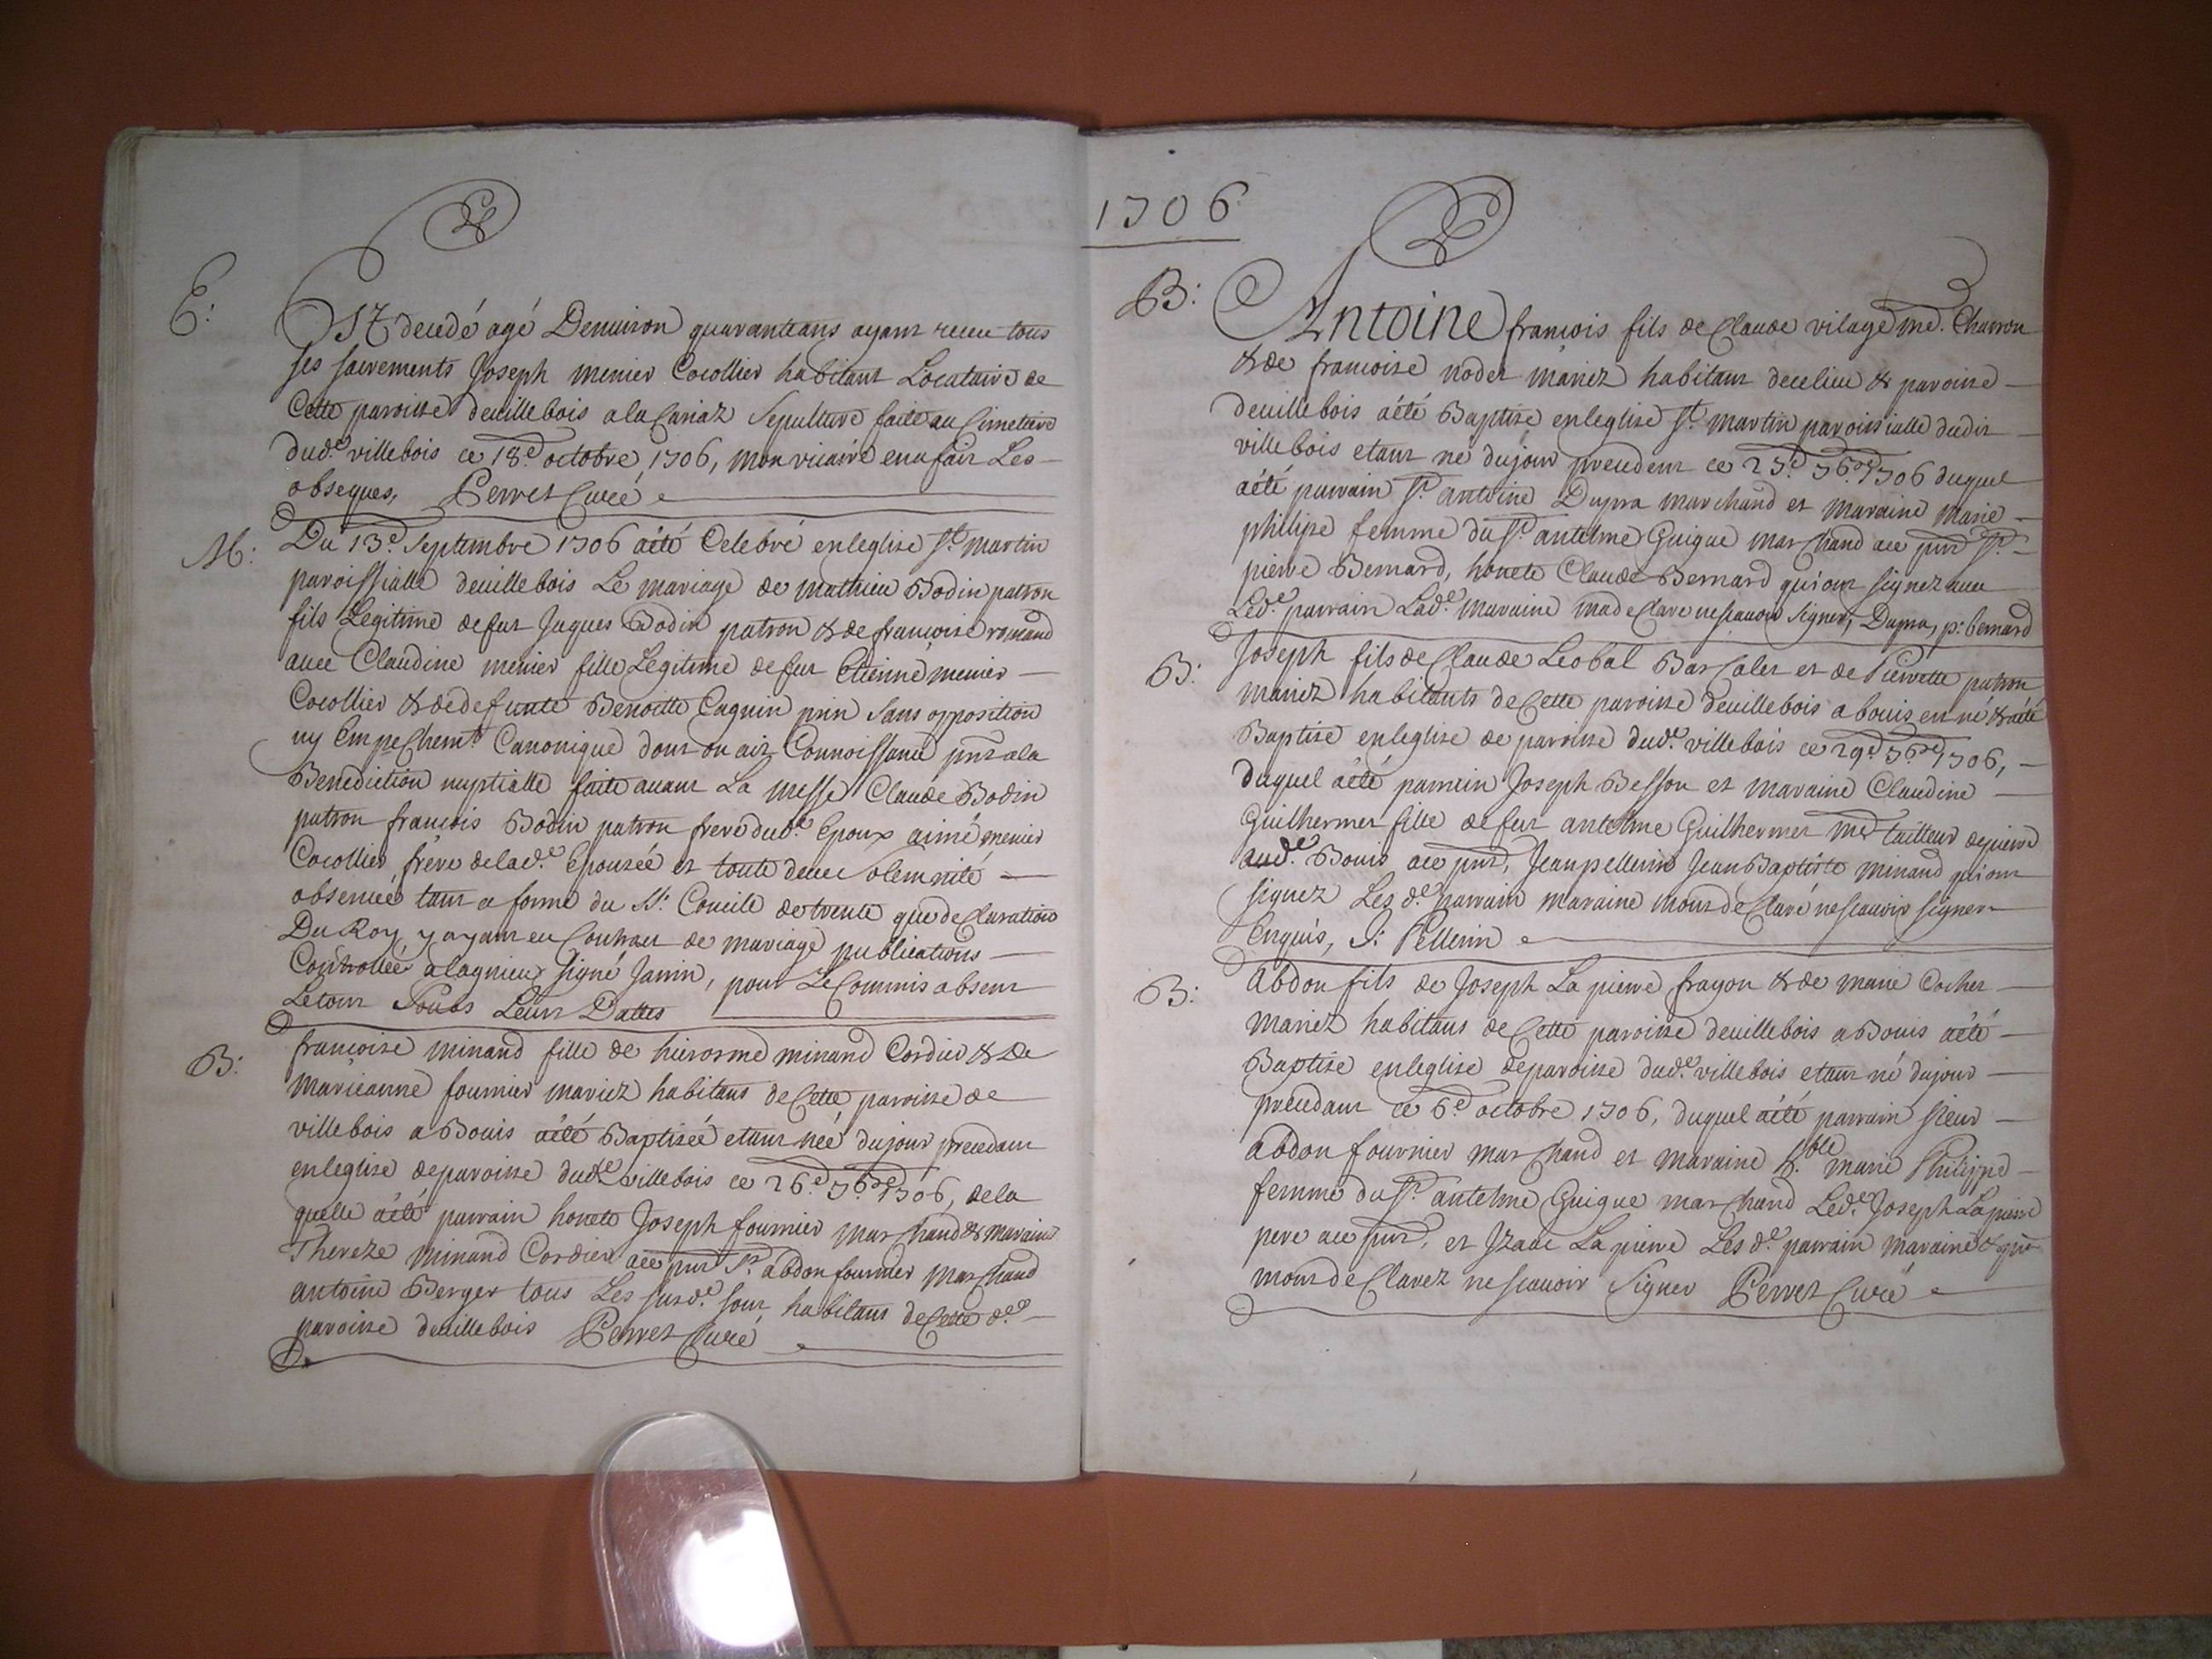 1706
E:
Est decedé agé Denuiron quarante ans ayant receu tous
ses sacrements Joseph menier Cocollier habitant Locataire de
Cette paroisse deuillebois a la Cariaz Sepulture faite au Cimetiere
dud.e villebois ce 18.e octobre 1706, mon vicaire en a fait Les
obseques, Perret Curé
M:
Du 13.e Septembre 1706 aété Celebré en leglise St. martin
paroissialle deuillebois Le mariage de mathieu Bodin patron
fils Legitime de fut Jaques Bodin patron & de francoise romand
auec Claudine menier fille Legitime de fut Etienne menier
Cocollier & de defunte Benoitte Caguin sans opposition
ny Empechemt. Canonique dont on ait Connoissance pnts ala
Benediction nuptialle faite auant La messe Claude Bodin
patron francois Bodin patron frere dud.e Epoux aimé menier
Cocollier frere de lad.e Epousée et toute deue solemnité
obseruée tant a forme du St. Concile de trente que declaration
Du Roy y ayant eu Contract de mariage publications
Controllée a lagnieu signé Janin, pour Le Commis absent
Letout Soubs Leurs Dattes
B:
francoise minand fille de hierosme minand Cordier & De
marieanne fournier mariez habitans de Cette paroisse de
villebois a Bouis aété Baptisée etant née du jour precedant
en leglise de paroisse dud.e villebois ce 26.e 7bre 1706, de la
quelle aété parrain honete Joseph fournier marchand & maraine
Thereze minand Cordier ace pnt Sr. abdon fournier marchand
antoine Berger tous Les susd.e sont habitans de Cette d.e
paroisse deuillebois Perret Curé
B:
Antoine francois fils de Claude vilage me. Charron
& de francoise nodet mariez habitant de ce lieu & paroisse
deuillebois aété Baptisé en leglise St. martin paroissialle dudit
villebois etant né du jour precedent ce 27.e 7bre 1706 duquel
aété parrain Sr. antoine Dupra marchand et maraine marie
philipe femme du Sr. antelme Guigue marchand ace pnt Sr.
pierre Bernard, honete Claude Bernard qui ont signez auec
Led.e parrain Lad.e maraine ma declare ne scauoir signer, Dupra, p: bernard
B:
Joseph fils de Claude Leobal Bascalet et de Pierrette patron
mariez habitants de Cette paroisse deuillebois a bouis en né & aété
Baptisé en leglise de paroisse dud.e villebois ce 29.e 7bre 1706,
duquel aété parrein Joseph Besson et maraine Claudine
Guilhermet fille de fut antelme Guilhermet me. tailleur de pierre
aud.e Bouis ace pnt, Jean pellerin Jean Baptiste minand qui ont
signez Les d.e parrain maraine mont declaré ne scauoir signer
Enquis, J: Pellerin
B:
Abdon fils de Joseph La pierre frayon & de marie Cochet
mariez habitans de Cette paroisse deuillebois a Bouis aété
Baptisé en leglise de paroisse dud.e villebois etant né du jour
precedant ce 6.e octobre 1706, duquel aété parrain sieur
abdon fournier marchand et maraine h.ble marie Philippe
femme du Sr. antelme Guigue marchand Led.e Joseph Lapierre
pere ace pnt, et Izaac La pierre Les d.e parrain maraine & pnt
mont declarez ne scauoir Signer Perret Curé